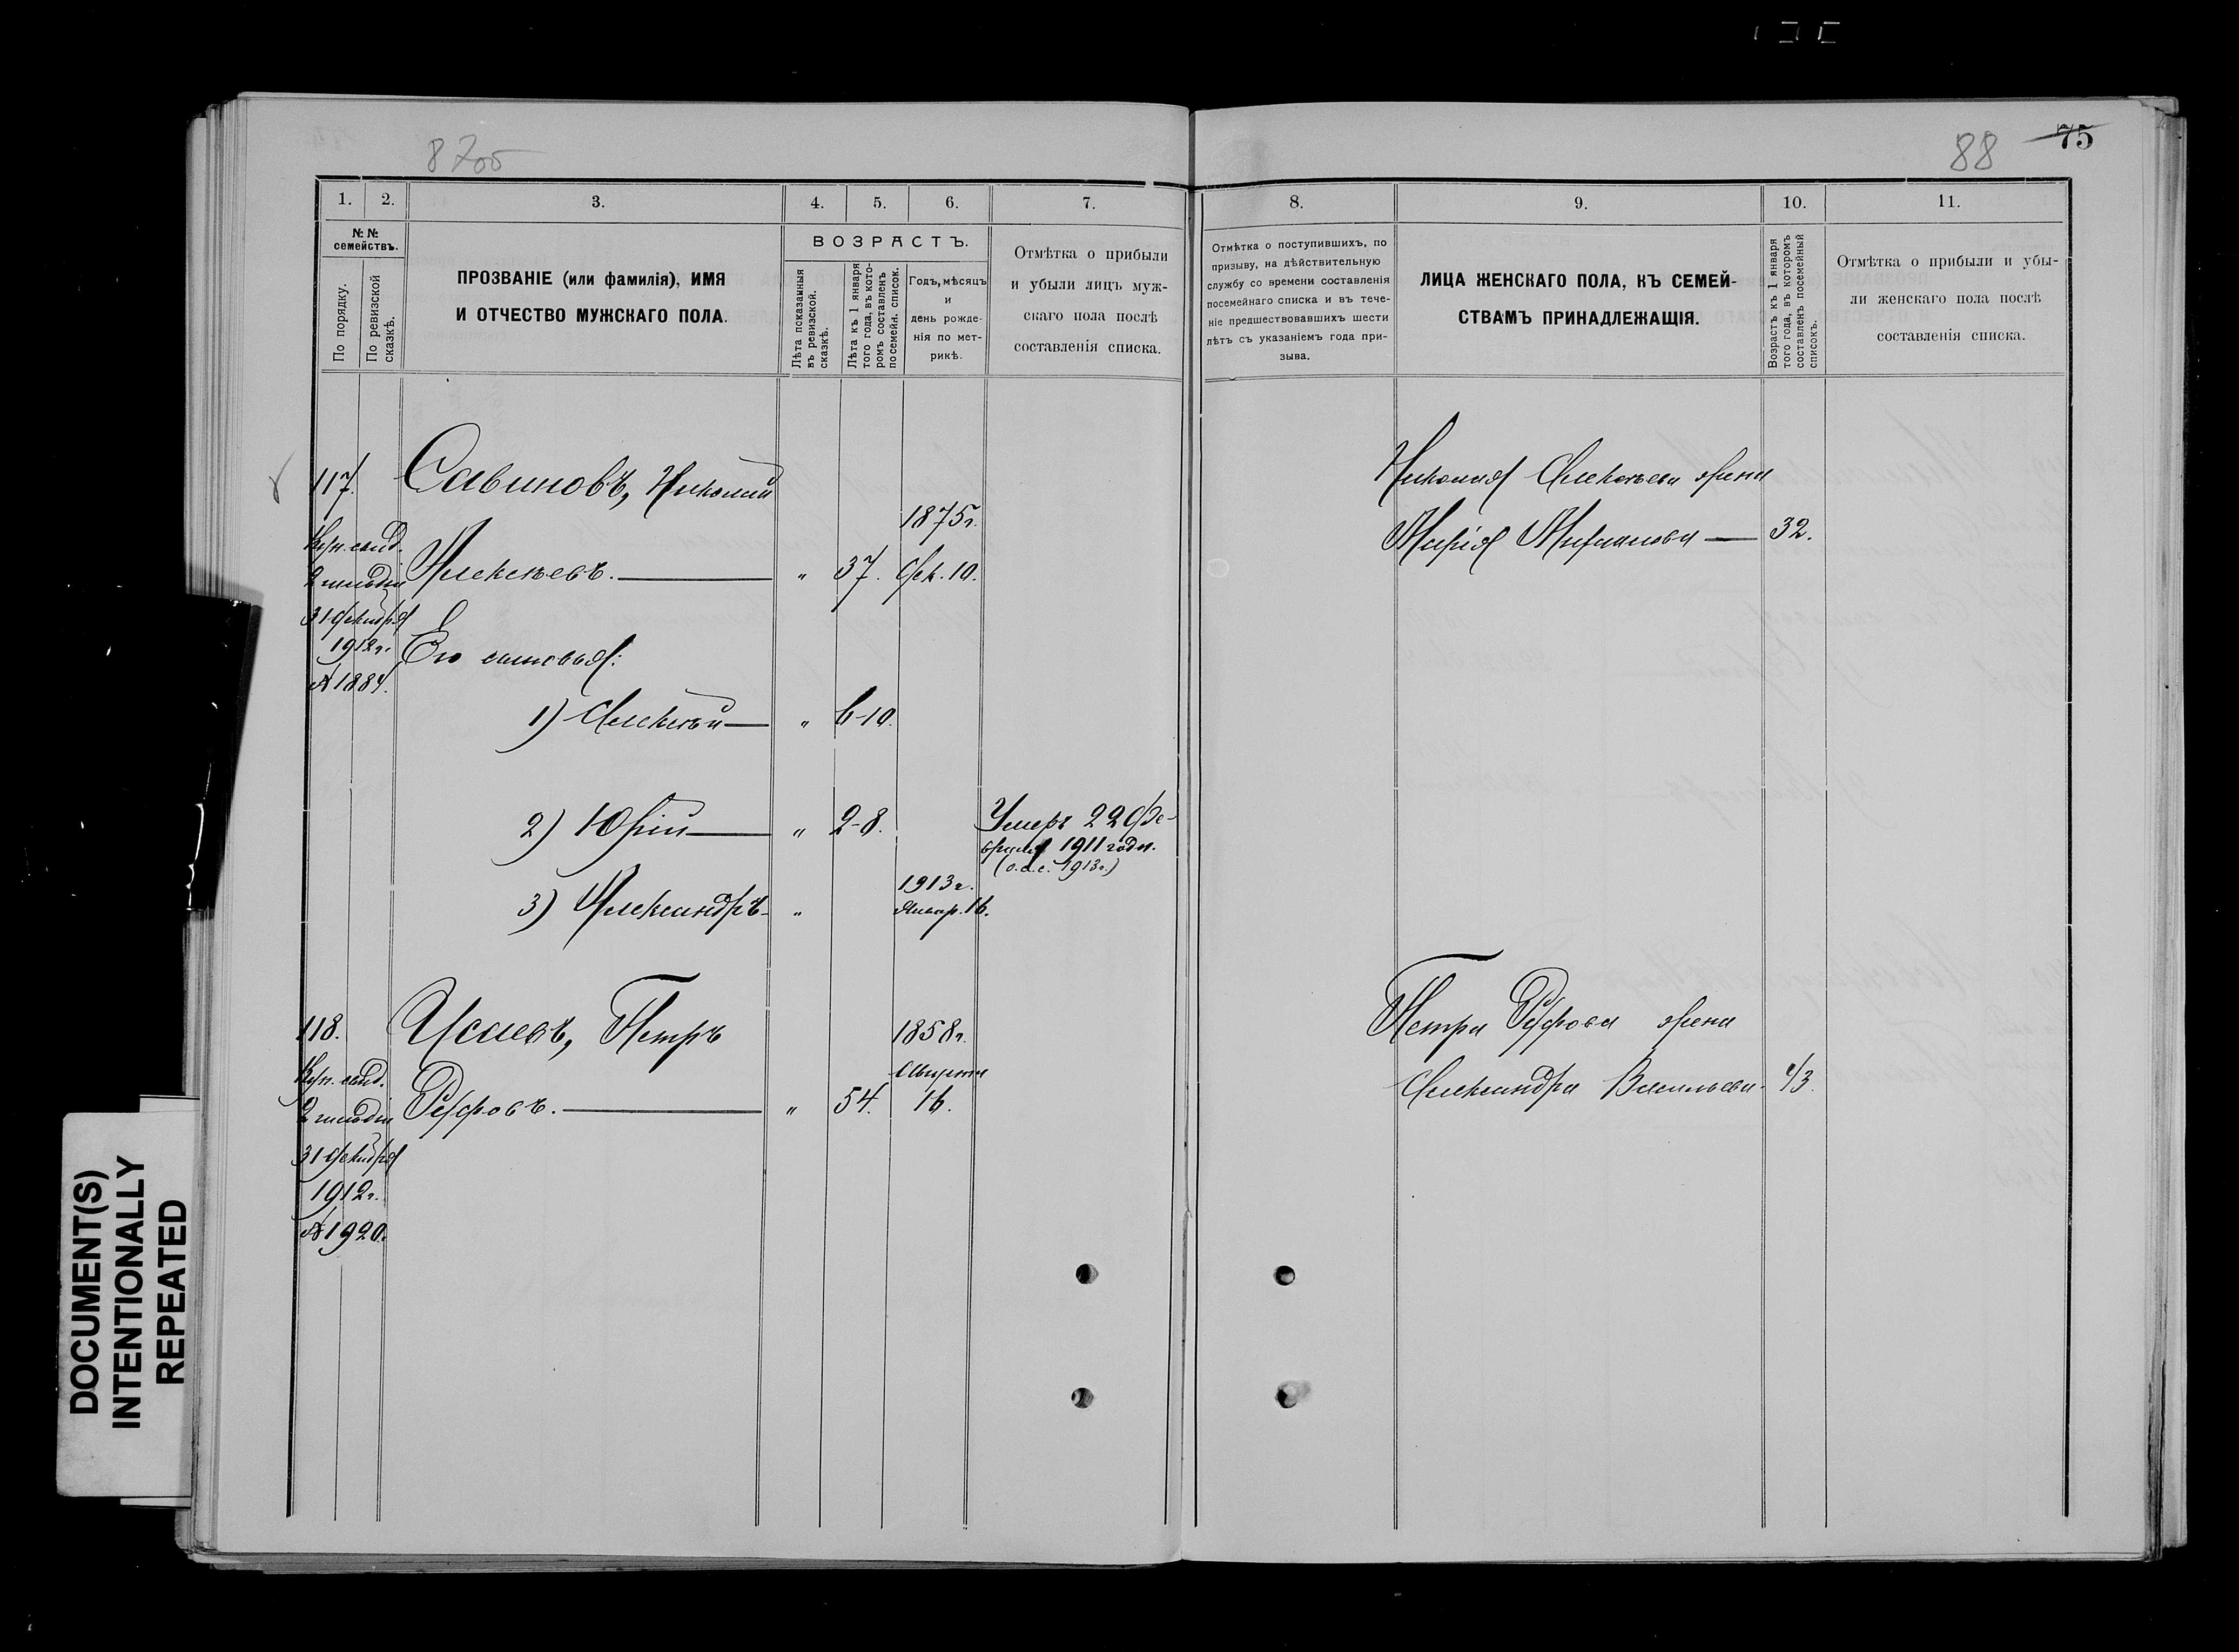 8705
88
75
1.
2.
3.
4.
5.
6.
7.
8.
9.
10.
11.
№ №
семействъ.
По порядку.
По ревизской
сказкѣ.
ПРОЗВАНІЕ (или фамилія), ИМЯ
И ОТЧЕСТВО МУЖСКАГО ПОЛА.
ВОЗРАСТЪ.
Лѣта показанныя
въ ревизской.
сказкѣ.
Лѣта къ 1 января
того года, въ кото-
ромъ составленъ
посемейн. список.
Годъ, мѣсяцъ
и
день рожде-
нія по мет-
рикѣ.
Отмѣтка о прибыли
и убыли лицъ муж-
скаго пола послѣ
составленія списка.
Отмѣтка о поступившихъ, по
призыву, на дѣйствительную
службу со времени составленія
посемейнаго списка и въ тече-
ніе предшествовавшихъ шести
лѣтъ съ указаніемъ года при-
зыва.
ЛИЦА ЖЕНСКАГО ПОЛА, КЪ СЕМЕЙ-
СТВАМЪ ПРИНАДЛЕЖАЩІЯ.
Возрастъ къ 1 января
того года, въ которомъ
составленъ посемейный
списокъ.
Отмѣтка о прибыли и убы-
ли женскаго пола послѣ
составленія списка.
117.
Савиновъ, Николай
Куп. свид.
2 гильдіи
31 декабря
1912 г.
№ 1884.
Алексѣевъ. — " 37. 1875 г. Дек. 10.
Его сыновья:
1) Алексѣй — " 6-10.
2) Юрій — " 2-8.
Умеръ 22 Фе-
враля 1911 года.
(о.а.с. 1913 г.)
3) Александръ - " 1913 г. Январ. 16.
Николая Алексѣева жена
Марія — 32.
118.
Исаевъ, Петръ
Куп. свид.
2 гильдіи
31 декабря
1912 г.
№ 1920.
— " 54. 1858 г. Августа 16.
Петра жена
Александра Васильева - 43.
DOCUMENT(S)
INTENTIONALLY
REPEATED